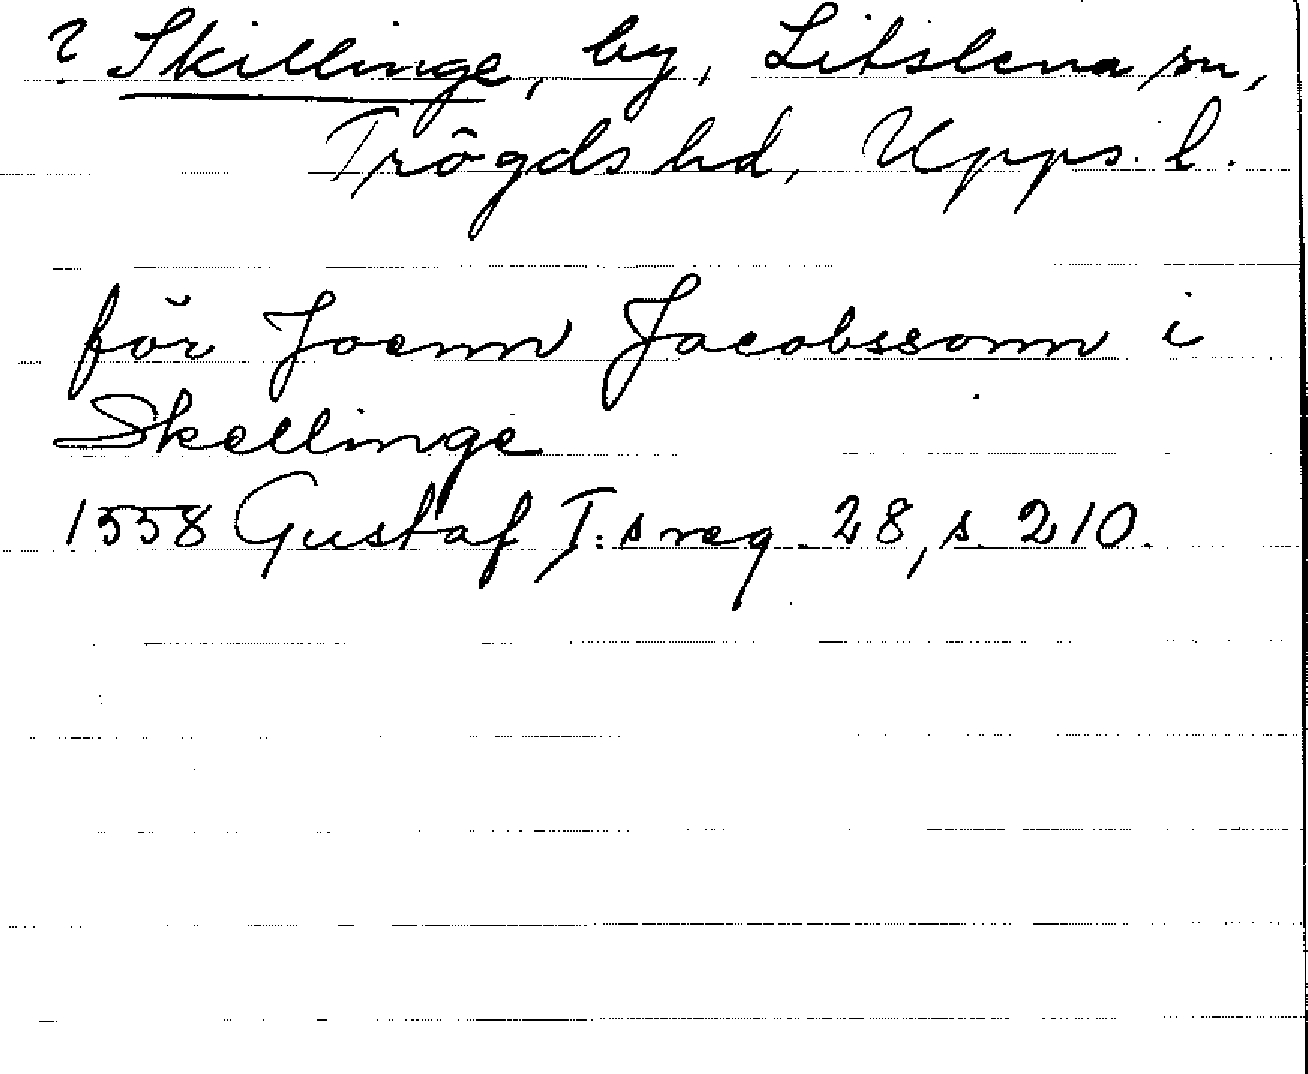 ? Skillinge, by, Litslena sn,
Trögds hd, Upps. l.
för Joenn Jacobssonn i
Skellinge
1558 Gustaf I:s reg. 28, s. 210.